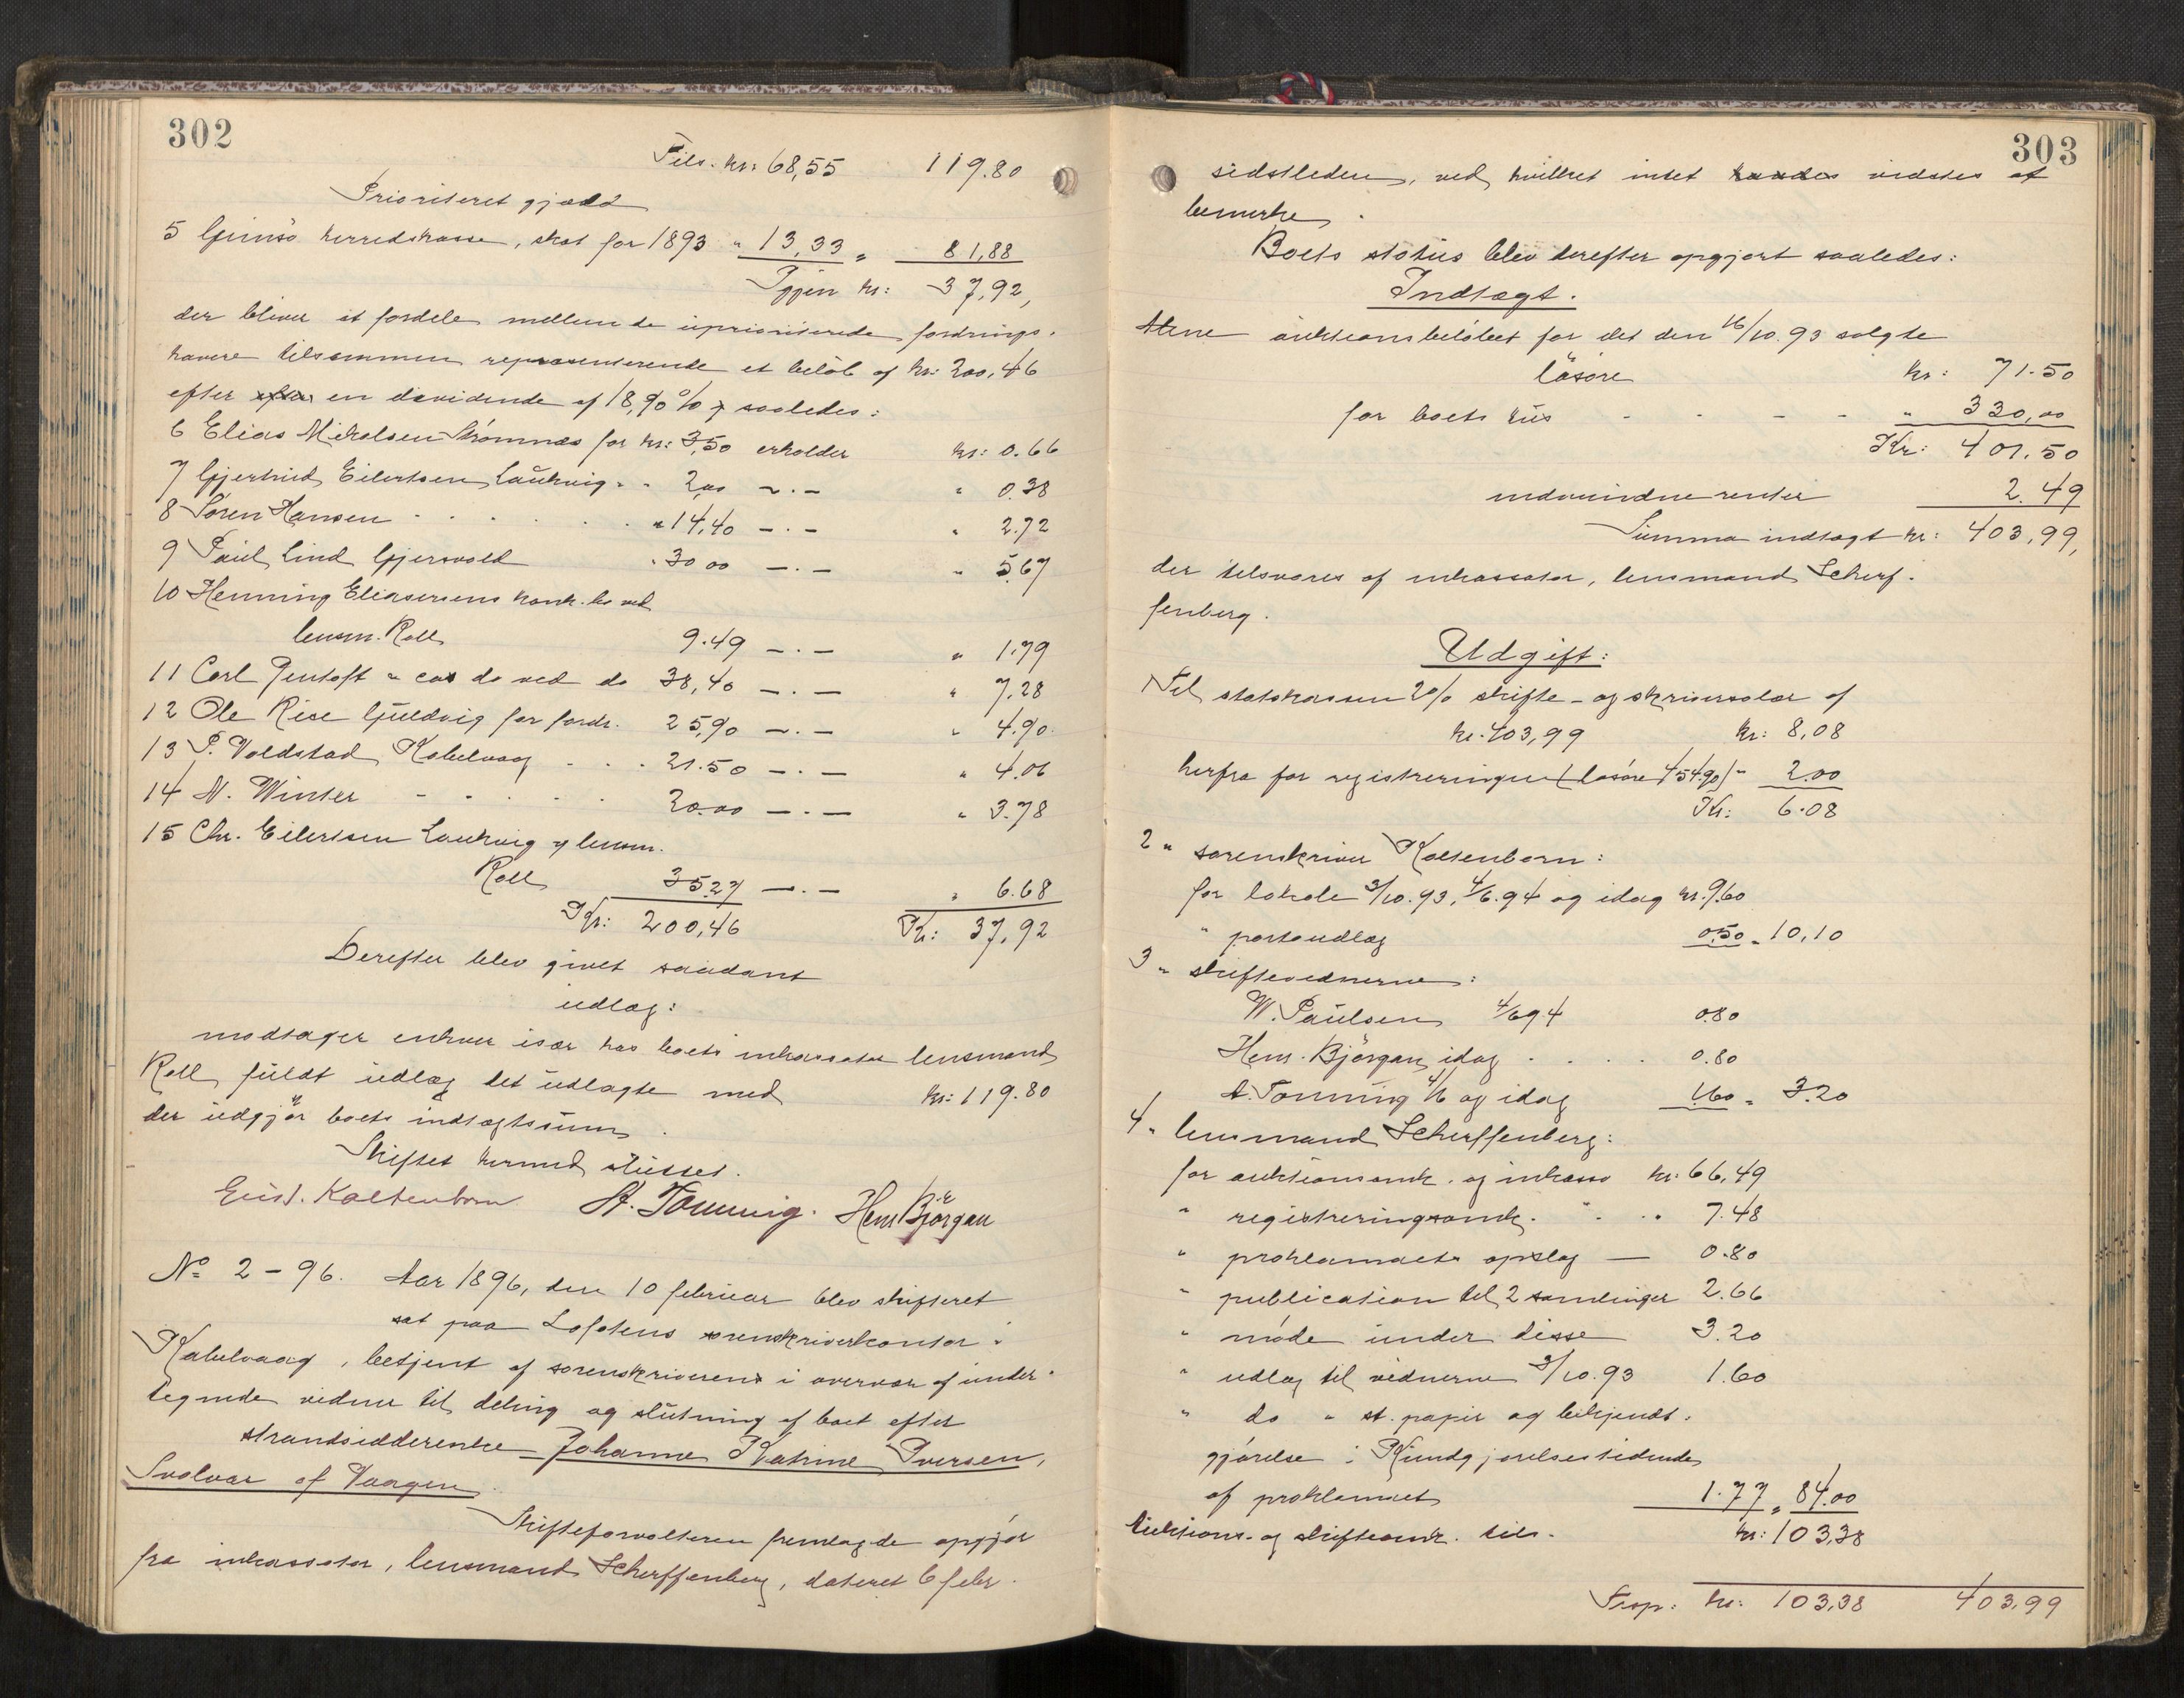 302
Tils. kr: 68,55 119.80
Prioriteret gjæld
5 Gimsö herredskasse, skat for 1893 " 13,33 " 81,88
Igjen kr: 37,92,
der bliver at fordele mellem de uprioriterede fordrings-
havere tilsammen repræsenterende et beløb af kr: 200,46
efter en dividende af 18,90 % saaledes:
6 Elias Mikalsen Strømnæs for kr: 3,50 erholder kr: 0.66
7 Gjertrud Eilertsen Laukvig " " 2,00 — . — " 0.38
8 Sören Hansen " 14,40 — . — " 2.72
9 Paul Lind Gjersvold " 30 00 — . — " 5,67
10 Henning Eliasersens konk. bo ved
lensm. Roll 9.49 — . — " 1.79
11 Carl Jentoft do ved do 38,40 — . — " 7,28
12 Ole Rise Guldvig for fordr. 25,90 — . — " 4.90
13 P. Voldstad Kabelvaag 21.50 — . — " 4.06
14 N. Winter 20.00 — . — " 3.78
15 Chr. Eilertsen Laukvig v/ lensm.
Roll 35.27 — . — " 6.68
Kr: 200,46 Kr: 37,92
Derefter blev givet saadant
udlæg:
modtager enhver især hos boets inkassator lensmand
Roll fuldt udlæg det udlagte med kr: 119.80
der udgjør boets indtægtssum.
Skiftet hermed sluttet.
Eust. Kaltenborn A. Tonning. Hem Björgan
No 2 - 96. Aar 1896, den 10 februar blev skifteret
sat paa Lofotens sorenskriverkontor i
Kabelvaag, betjent af sorenskriveren i overvær af under-
tegnede vidner til deling og slutning af boet efter
strandsidderenke Johanna Katrine Iversen,
Svolvær af Vaagen.
Skifteforvalteren fremlagde opgjör
fra inkassator, lensmand Scherffenberg, dateret 6 febr.
303
sidstleden, ved hvilket intet vidstes at
bemerke.
Boets status blev derefter opgjort saaledes:
Indtægt.
auktionsbeløbet for det den 16/10.93 solgte
løsøre kr: 71.50
for boets hus - - - - " 330,00
Kr: 401.50
indvundne renter 2.49
Summa indtægt kr: 403,99,
der tilsvares af inkassator, lensmand Scherf-
fenberg.
Udgift:
Til statskassen 2% skifte- og skriversalær af
kr. 403,99 kr: 8,08
herfra for registreringen (løsøre 454.90) " 2.00
Kr: 6.08
2 " sorenskriver Kaltenborn:
for lokale 3/10.93, 4/6.94 og idag kr. 9.60
" portoudlæg 0.50 " 10,10
3 " skiftevidnerne:
W. Paulsen 4/6 94 0.80
Hem. Björgan, idag . . . . 0.80
A. Tonning 4/6 og idag 1.60 " 3.20
4 " lensmand Scherffenberg:
for auktionsomk. og inkasso kr: 66,49
" registreringsomk. " . . 7.48
" proklamaets opslag — 0.80
" publication til 2 samlinger 2.66
" møde under disse 3.20
" udlæg til vidnerne 3/10.93 1.60
" do " st. papir og bekjendt-
gjørelse i Kundgjørelsestidende
af proklamaet 1.77 " 84.00
Auktions- og skifteomk. tils. kr: 103,38
Trsp: kr: 103,38 403,99